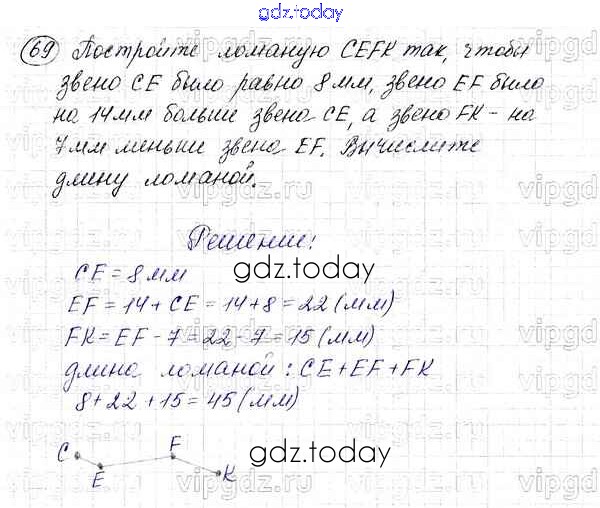 gdz.today
69 Постройте ломаную CEFK так, чтобы
звено CE было равно 8 мм, звено EF было
на 14мм больше звена CE, а звено FK - на
7мм меньше звена EF. Вычислите
длину ломаной.
Решение:
CE = 8 мм
gdz.today
EF = 14 + CE = 14 + 8 = 22 (мм)
FK = EF - 7 = 22 - 7 = 15 (мм)
длина ломаной: CE + EF + FK
8 + 22 + 15 = 45 (мм)
C E F K
gdz.today
vipgdz.ru